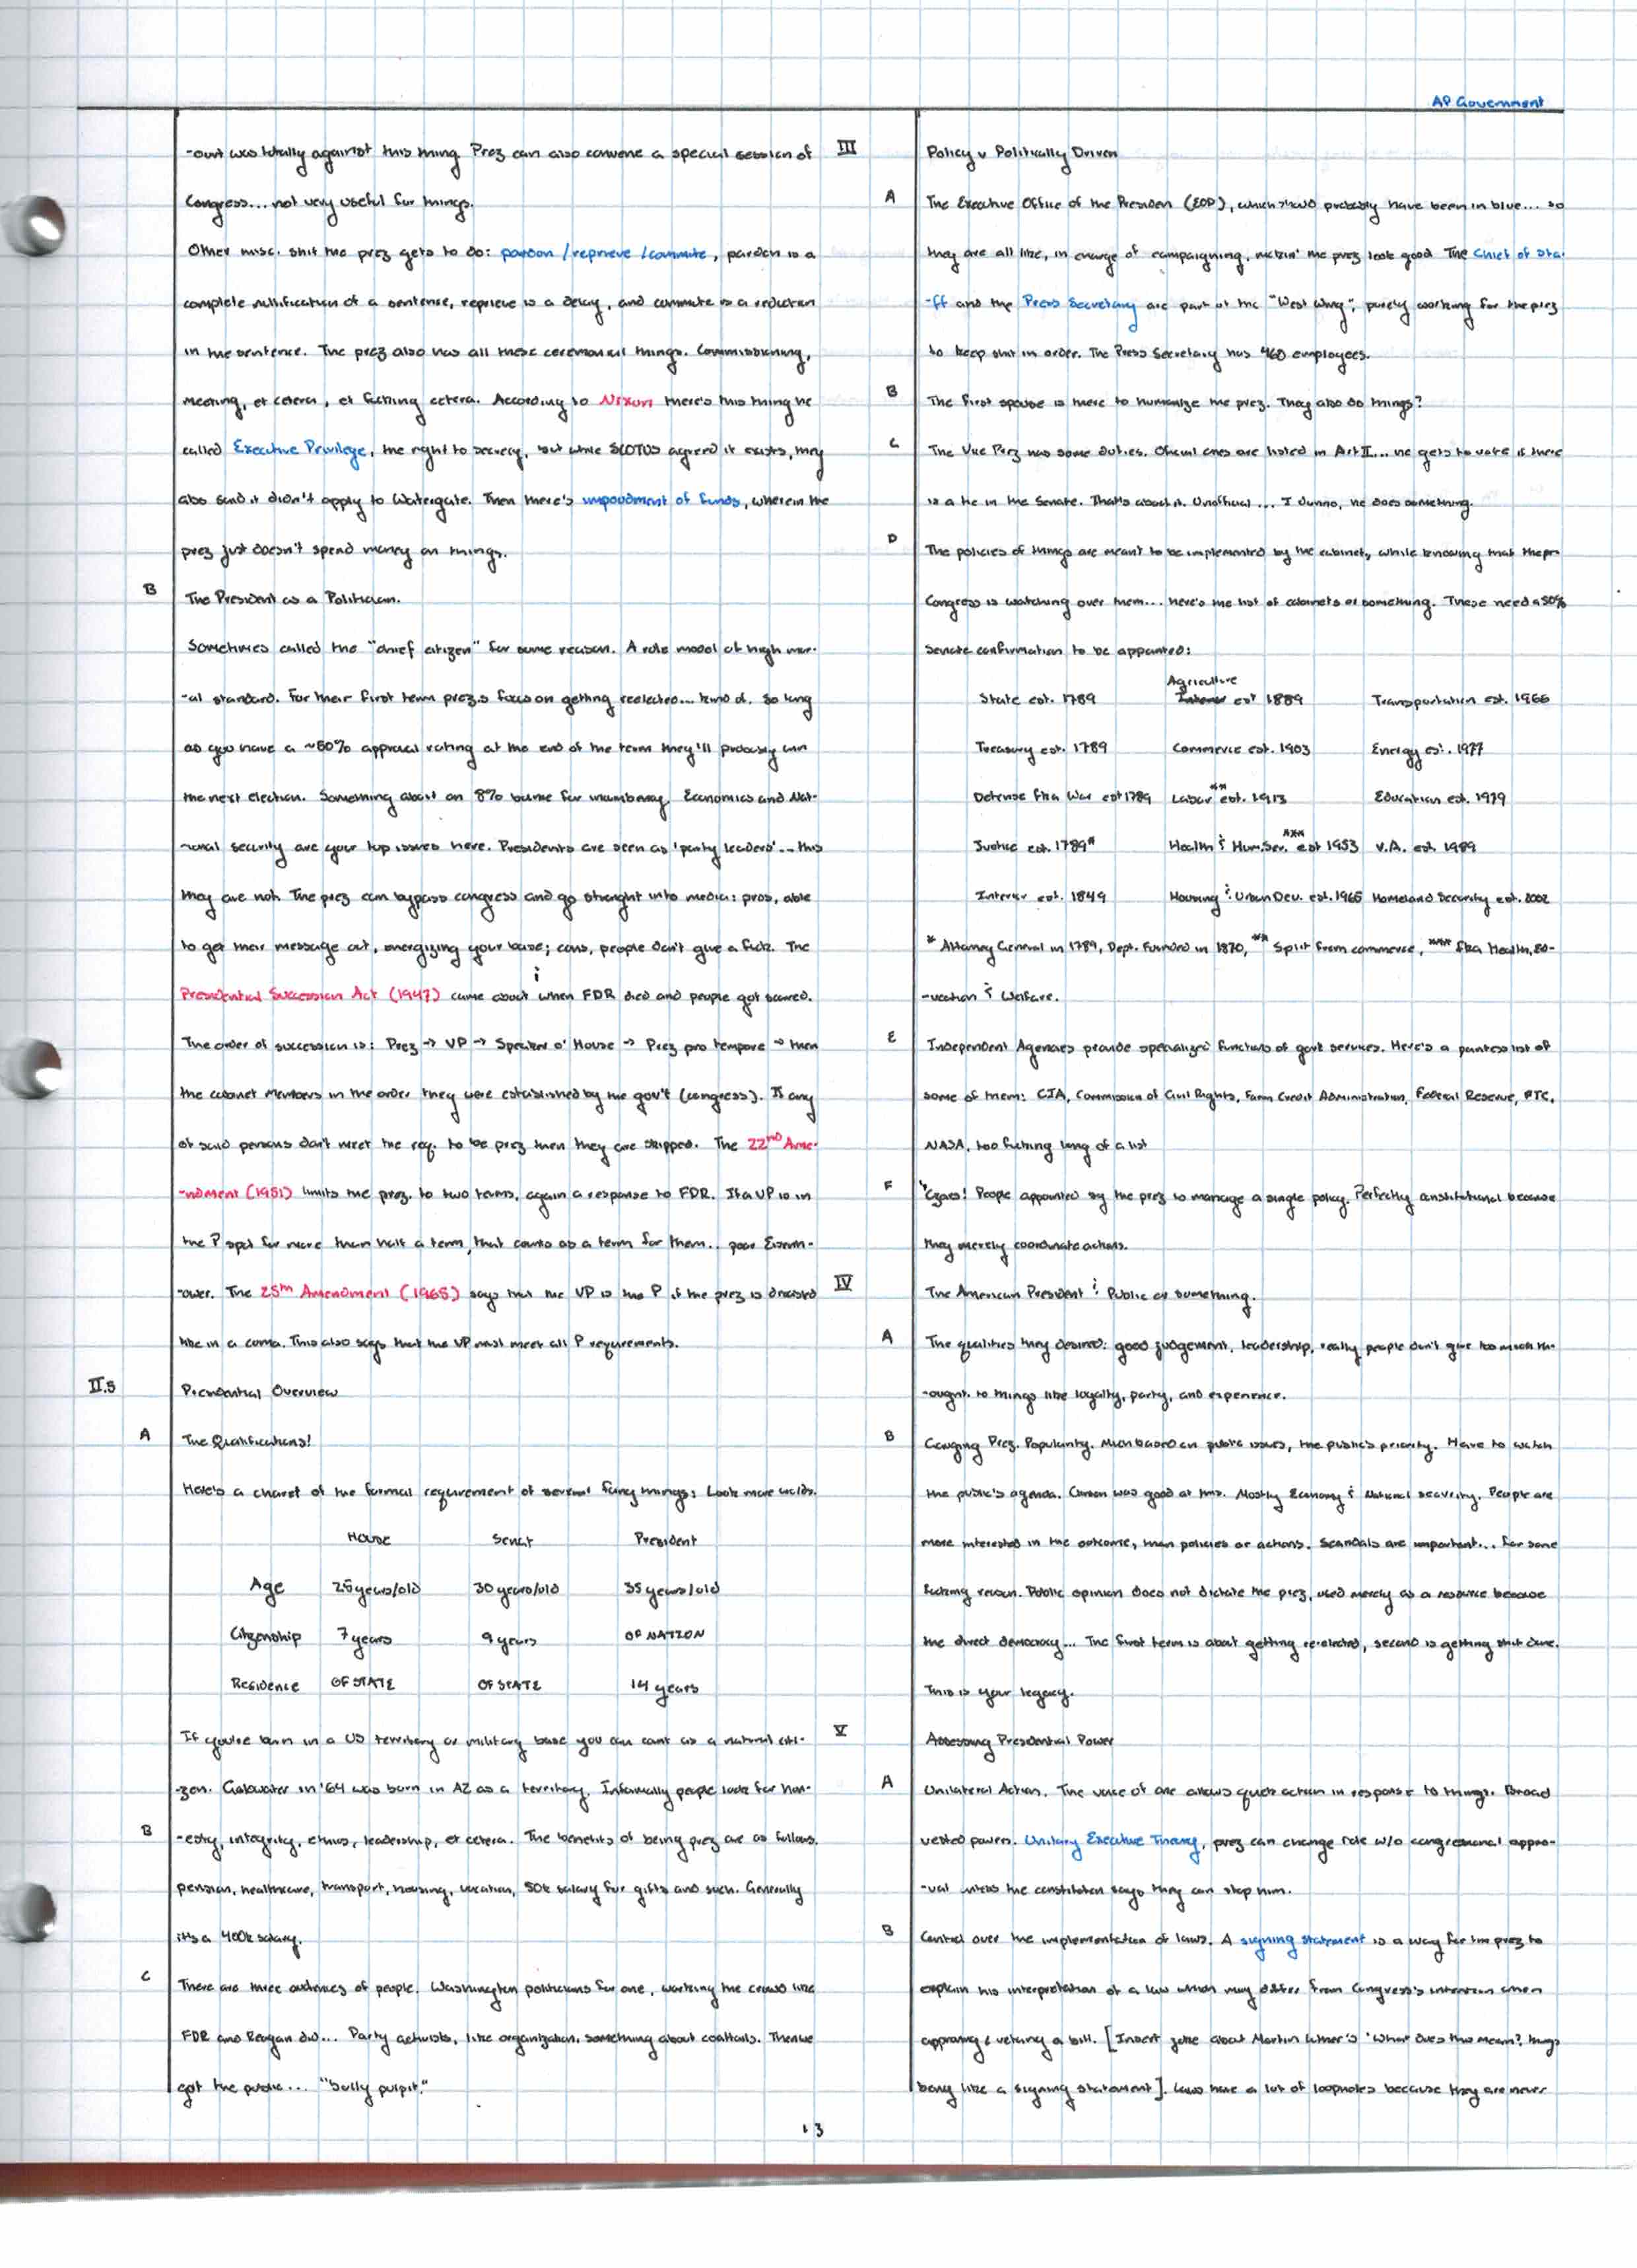 AP Government
-ourt was totally against this thing. Prez can also convene a special session of
Congress... not very useful for things.
Other misc. shit the prez gets to do: pardon/reprieve/commute, pardon is a
complete nullification of a sentence, reprieve is a delay, and commute is a reduction
in the sentence. The prez also has all these ceremonial things. Commissioning,
meeting, et cetera, et fucking cetera. According to Nixon there's this thing he
called Executive Privilege, the right to secrecy, but while SCOTUS agreed it exists, they
also said it didn't apply to Watergate. Then there's impoundment of funds, wherein the
prez just doesn't spend money on things.
B The President as a Politician.
Sometimes called the "chief citizen" for some reason. A role model of high mor-
-al standard. For their first term prez.s focus on getting reelected... kind of. So long
as you have a ~50% approval rating at the end of the term they'll probably win
the next election. Something about an 8% bump for incumbency. Economics and Nat-
-ional security are your top issues here. Presidents are seen as 'party leaders'... this
they are not. The prez can bypass congress and go straight into media: pros, able
to get their message out, energizing your base; cons, people don't give a fuck. The
Presidential Succession Act (1947) came about when FDR died and people got scared.
The order of succession is: Prez → VP → Speaker o' House → Prez pro tempore → then
the cabinet members in the order they were established by the gov't (congress). If any
of said persons don't meet the req. to be prez then they are skipped. The 22nd Ame-
-ndment (1951) limits the prez. to two terms, again a response to FDR. If a VP is in
the P spot for more than half a term, that counts as a term for them.. poor Eisenh-
-ower. The 25th Amendment (1965) says that the VP is the P if the prez is
like in a coma. This also says that the VP must meet all P requirements.
II.5 Presidential Overview
A The Qualifications!
Here's a chart of the formal requirement of several fancy things: Look more
House Senat President
Age 25years/old 30years/old 35years/old
Citizenship 7years 9years OF NATION
Residence OF STATE OF STATE 14 years
If you're born in a US territory or military base you can count as a natural citi-
-zen. Goldwater in '64 was born in AZ as a territory. Informally people look for hon-
B -esty, integrity, ethics, leadership, et cetera. The benefits of being prez are as follows.
pension, healthcare, transport, housing, vacation, 50k salary for gifts and such. Generally
it's a 400k salary.
C There are three audiences of people. Washington politicians for one, working the crowd like
FDR and Reagan did... Party activists, like organization, something about coattails. Then we
got the public... "bully pulpit."
III Policy v Politically Driven
A The Executive Office of the Presiden (EOP), which should probably have been in blue... so
they are all like, in charge of campaigning, makin' the prez look good. The Chief of Sta-
-ff and the Press Secretary are part of the "West Wing", purely working for the prez
to keep shit in order. The Press Secretary has 460 employees.
B The first spouse is there to humanize the prez. They also do things?
C The Vice Prez has some duties. Official ones are listed in Art II... he gets to vote if there
is a tie in the Senate. That's about it. Unofficial... I dunno, he does something.
D The policies of things are meant to be implemented by the cabinet, while knowing that the pr
Congress is watching over them... here's the list of cabinets or something. These need a 50%
senate confirmation to be appointed:
State est. 1789 Agriculture est 1889 Transportation est. 1966
Treasury est. 1789 Commerce est. 1903 Energy est. 1977
Defense fka War est 1789 Labor** est. 1913 Education est. 1979
Justice est. 1789* Health & Hum.Ser.*** est 1953 V.A. est. 1989
Interior est. 1849 Housing & Urban Dev. est. 1965 Homeland Security est. 2002
* Attorney General in 1789, Dept. Founded in 1870, ** Split from commerce, *** fka Health, Ed-
-ucation & Welfare.
E Independent Agencies provide specialized functions of govt services. Here's a list of
some of them: CIA, Commission of Civil Rights, Farm Credit Administration, Federal Reserve, FTC,
NASA, too fucking long of a list
F Czars! People appointed by the prez to manage a single policy. Perfectly constitutional because
they merely coordinate actions.
IV The American President & Public or something.
A The qualities they desired: good judgement, leadership, really people don't give too much th-
-ought. to things like loyalty, party, and experience.
B Gauging Prez. Popularity. Much based on public issues, the public's priority. Have to watch
the public's agenda. was good at this. Mostly Economy & National security. People are
more interested in the outcome, than policies or actions. Scandals are important... for some
fucking reason. Public opinion does not dictate the prez, used merely as a resource because
the direct democracy... The first term is about getting re-elected, second is getting shit done.
This is your legacy.
V Assessing Presidential Power
A Unilateral Action. The voice of one allows quick action in response to things. Broad
vested powers. Unitary Executive Theory, prez can change role w/o congressional appro-
-val unless the constitution says they can stop him.
B Control over the implementation of laws. A signing statement is a way for the prez to
explain his interpretation of a law which may differ from Congress's intention when
approving & vetoing a bill. [Insert joke about Martin Luther's 'What does this mean?' things
being like a signing statement]. Laws have a lot of loopholes because they are never
13